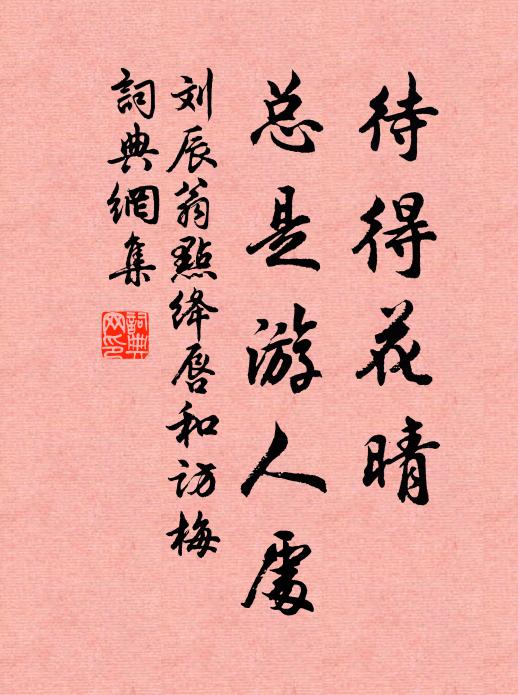 待得花晴
总是游人處
刘辰翁點绛唇和访梅
詞典網集
詞典
网印